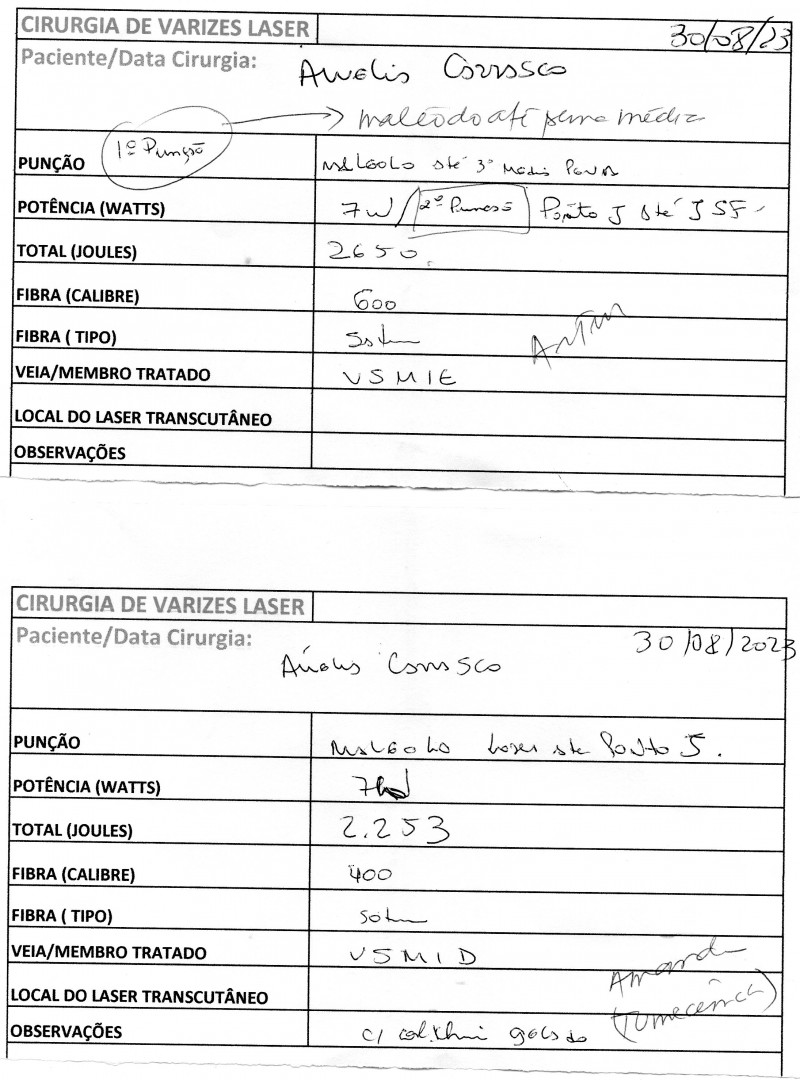 CIRURGIA DE VARIZES LASER
30/08/23
Paciente/Data Cirurgia:
Carrasco
maléolo até perna média
PUNÇÃO
1º Punção
Maléolo até 3º Médio Perna
POTÊNCIA (WATTS)
7W / 2º Punção Ponto J até JSF
TOTAL (JOULES)
2650
FIBRA (CALIBRE)
600
FIBRA ( TIPO)
VEIA/MEMBRO TRATADO
VSMIE
Artur
LOCAL DO LASER TRANSCUTÂNEO
OBSERVAÇÕES
CIRURGIA DE VARIZES LASER
Paciente/Data Cirurgia:
30/08/2023
Carrasco
PUNÇÃO
Maléolo até Ponto J.
POTÊNCIA (WATTS)
7W
TOTAL (JOULES)
2.253
FIBRA (CALIBRE)
400
FIBRA ( TIPO)
VEIA/MEMBRO TRATADO
VSMID
Amanda
LOCAL DO LASER TRANSCUTÂNEO
OBSERVAÇÕES
c/ gelado